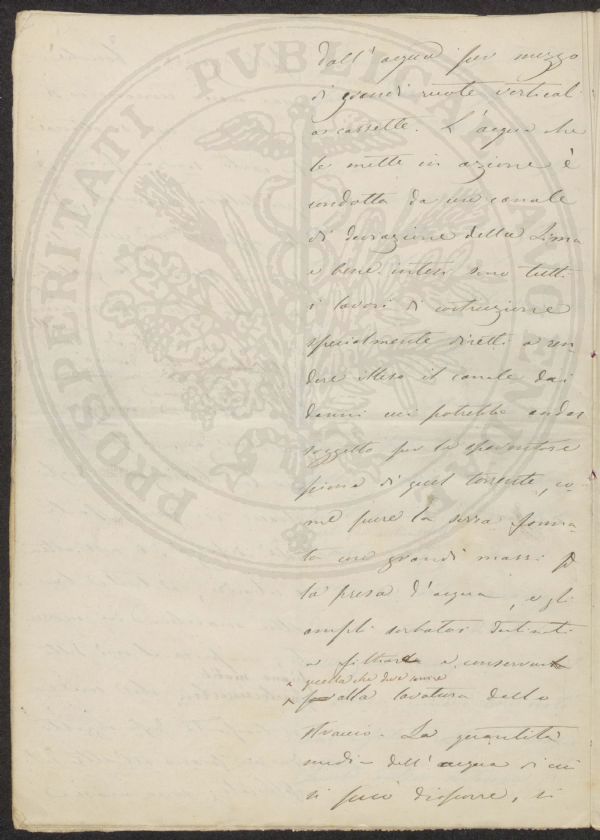 dall'acqua per mezzo
di grandi ruote verticali
a cassette. L'acqua che
le mette in azione è
condotta da un canale
di derivazione della Lima
e bene intesi sono tutti
i lavori di costruzione
specialmente diretti a ren-
dere illeso il canale dai
danni cui potrebbe andar
soggetto per le spaventose
piene di quel torrente, co-
me pure la serra forma-
ta con grandi massi p
la presa d'acqua, e gli
ampli serbatoi destinati
a filtrare e conservare
quella che deve servire
alla lavatura dello
straccio. La quantità
media dell'acqua di cui
si può disporre, si
PROSPERITATI PVBLICAE AVGENDAE